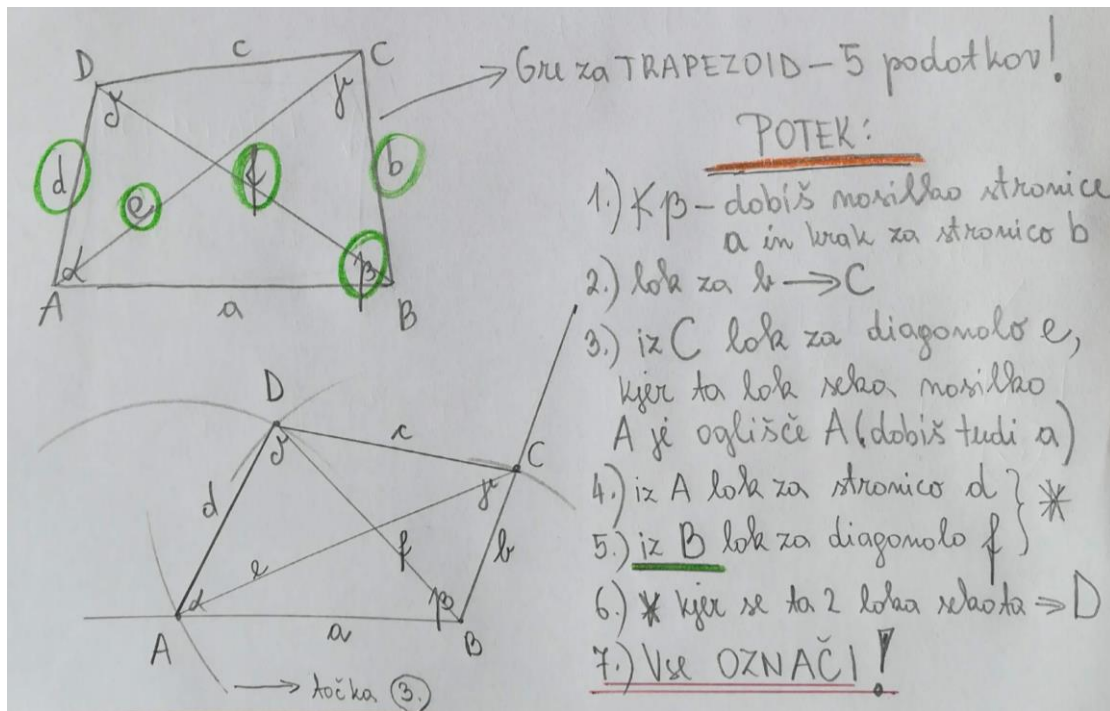 D c C
d e f b
δ γ
α β
A a B
Gre za TRAPEZOID - 5 podatkov!
POTEK:
1.) ∢β - dobiš nosilko stronice
a in krak za stronico b
2.) lok za b → C
3.) iz C lok za diagonalo e,
kjer ta lok seka nosilko
A je oglišče A (dobiš tudi a)
4.) iz A lok za stronico d } *
5.) iz B lok za diagonalo f
6.) * kjer se ta 2 loka sekata ⇒ D
7.) Vse OZNAČI!
D c C
δ γ
d e f b
α β
A a B
→ točka 3.